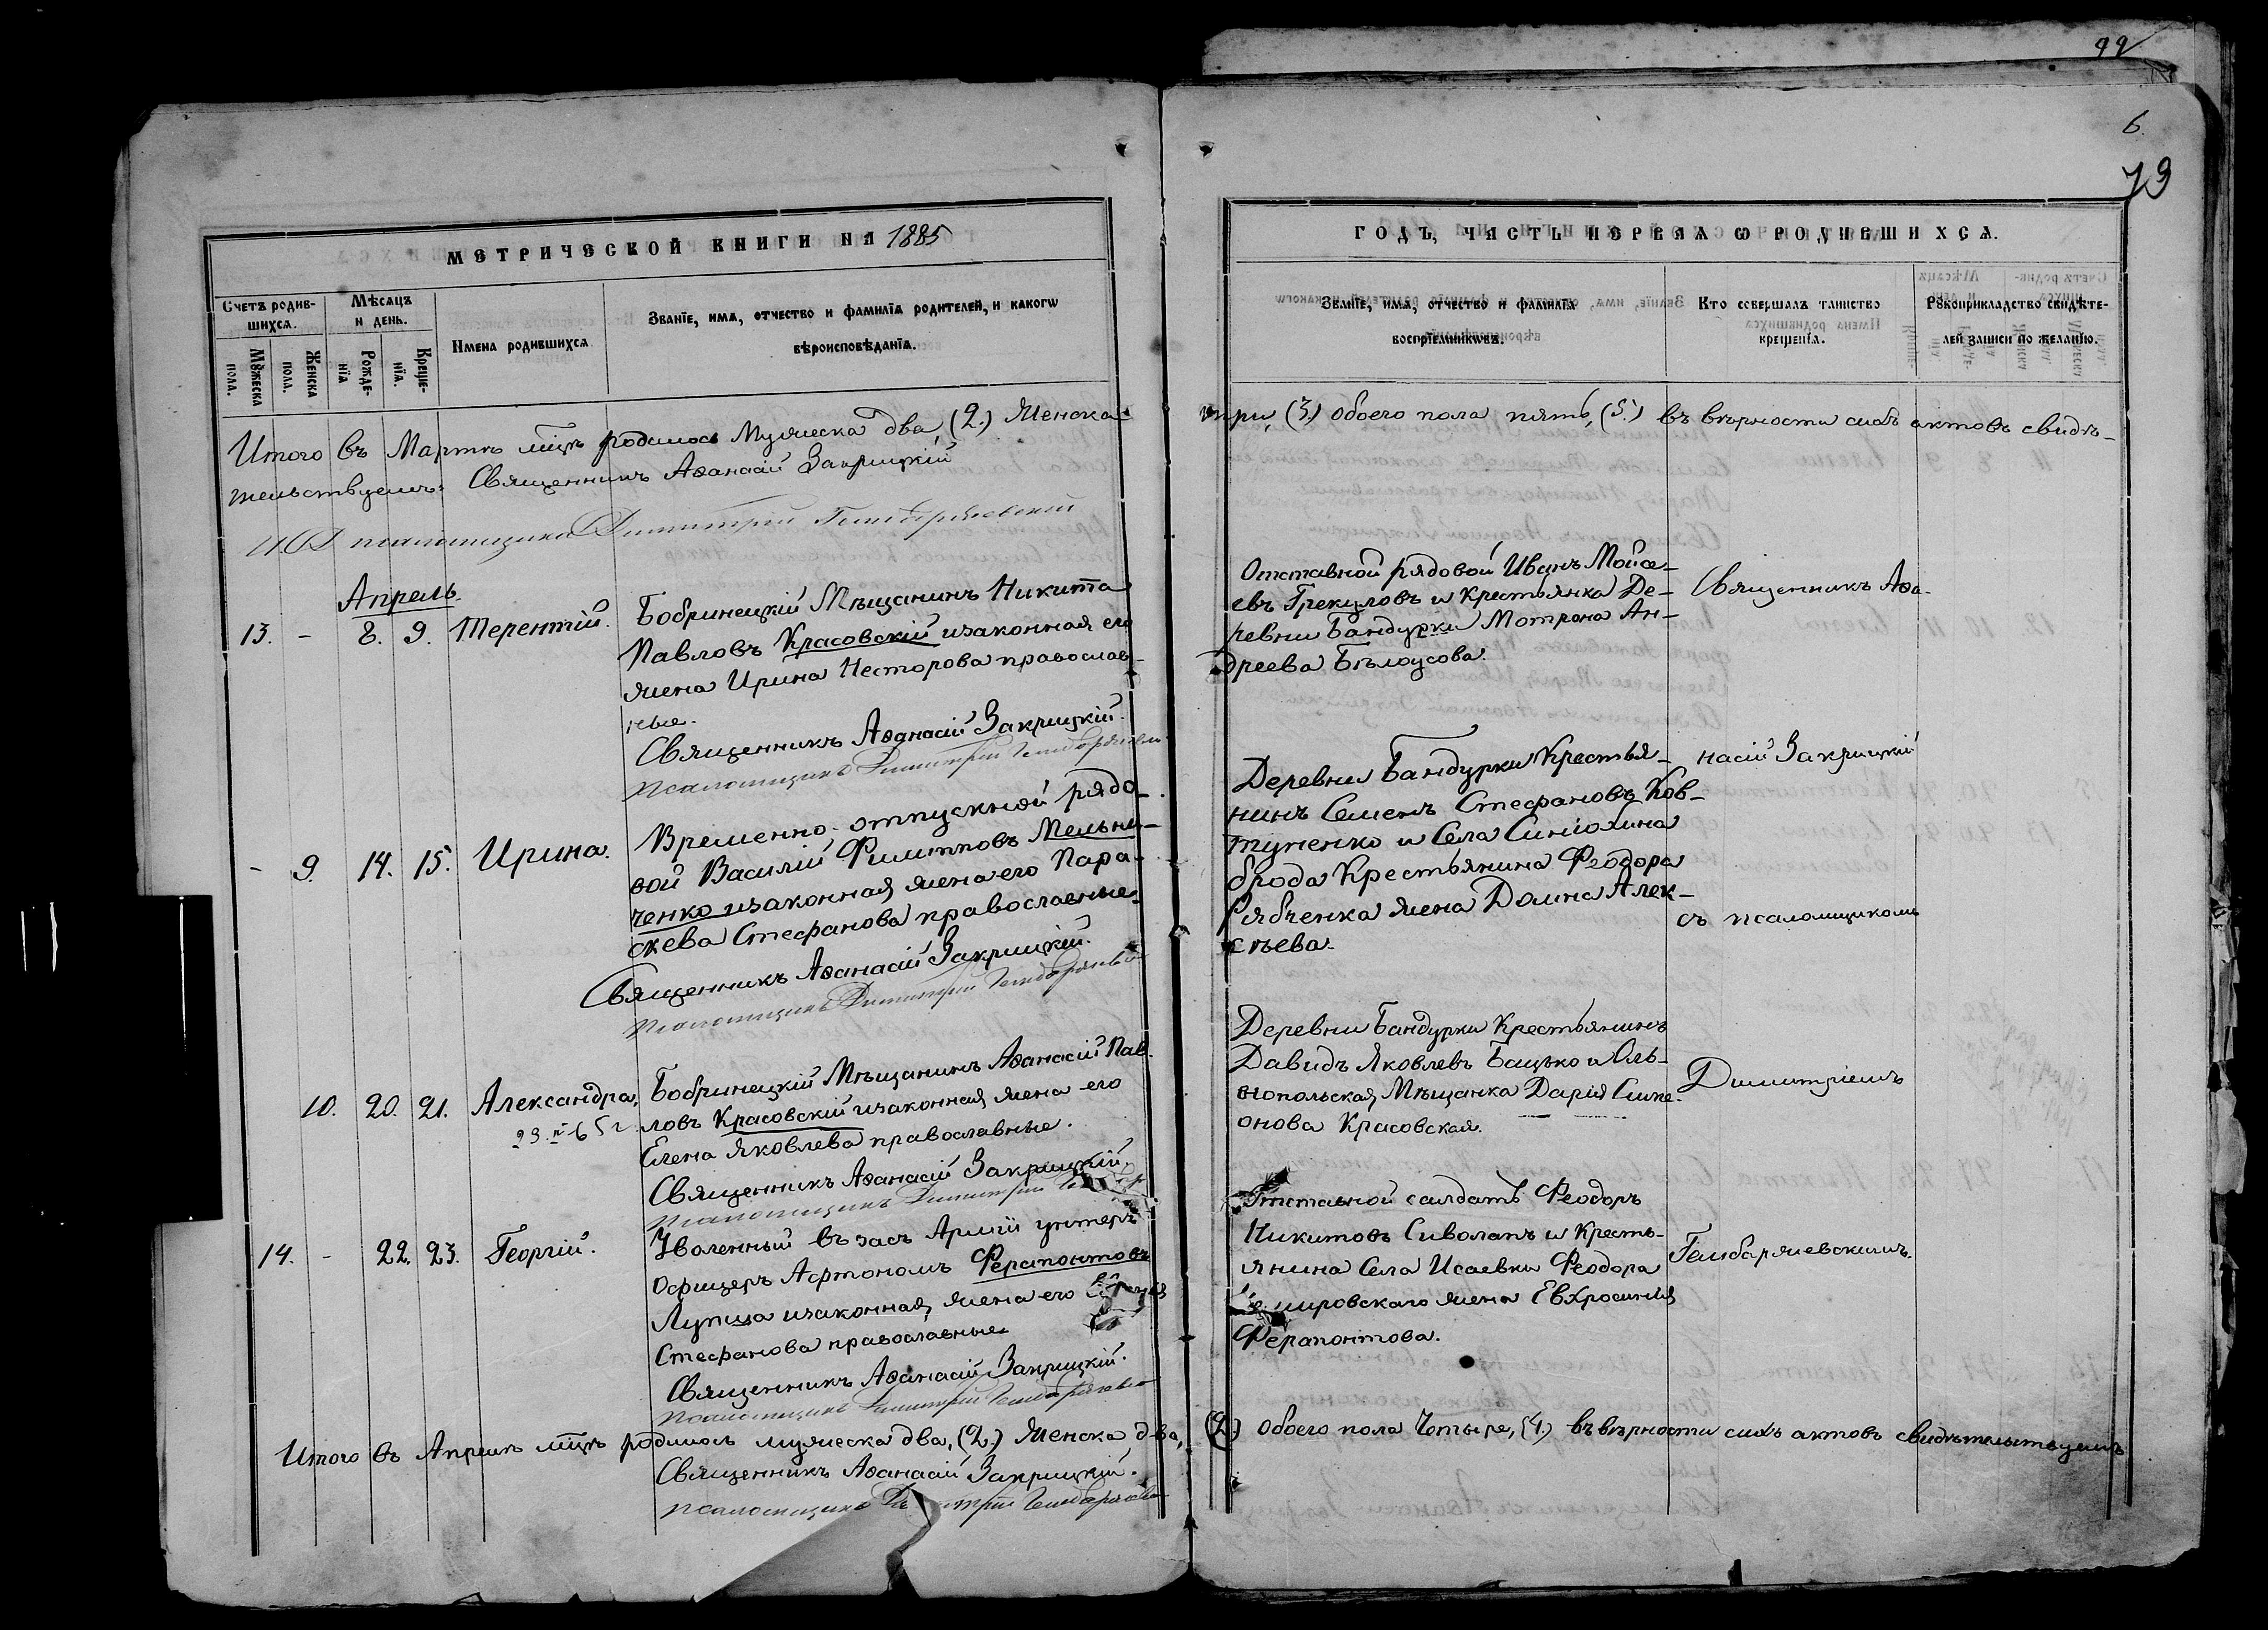 99
6.
79
МЕТРИЧЕСКОЙ КНИГИ НА 1885
ГОДЪ, ЧАСТЬ ПЕРВАЯ Ѡ РОДИВШИХСЯ.
Счетъ родив-
шихся.
Мѣсяцъ
и день.
Имена родившихся
Званїе, имя, отчество и фамилїя родителей, и какогѡ
вѣроисповѣданїя.
Мꙋжеска
пола.
Женска
пола.
Рожде-
нїя
Креще-
нїя.
Званїе, имя, отчество и фамилїя
воспрїемникѡвъ.
Кто совершалъ таинство
крещенїя.
Рꙋкоприкладство свидѣте-
лей записи по желанїю.
Итого въ Мартѣ мцѣ родилось Мужеска два, (2.) Женска
три, (3.) обоего пола пять, (5.) въ вѣрности сихъ актовъ свидѣ-
тельствуемъ: Священникъ Аѳанасій Закрицкій
И Д псаломщика Димитрій
Апрель.
13. - 8. 9. Терентій.
Бобринецкій Мѣщанинъ Никита
Павловъ Красовскій изаконная его
жена Ирина Несторова православ-
ные.
Священникъ Аѳанасій Закрицкій.
псаломщикъ Димитрій
Отставной рядовой Иванъ Мойсе-
евъ Грекуловъ и крестьянка Де-
ревни Бандурки Мотрона Ан-
дреева Бѣлоусова.
Священникъ Аѳа-
- 9. 14. 15. Ирина.
Временно-отпускной рядо-
вой Василій Филипповъ Мельни-
ченко изаконная жена его Пара-
скева Стефанова православные.
Священникъ Аѳанасій Закрицкій.
псаломщикъ Димитрій
Деревни Бандурки Крестья-
нинъ Семенъ Стефановъ Ков-
туненко и Села Синюхина
брода Крестьянина Феодора
Рябченка жена Домна Алек-
сѣева.
насій Закрицкій
съ псаломщикомъ
10. 20. 21. Александра.
Бобринецкій Мѣщанинъ Аѳанасій Пав-
ловъ Красовскій изаконная жена его
Елена Яковлева православные.
Священникъ Аѳанасій Закрицкій.
псаломщикъ Димитрій
Деревни Бандурки Крестьянинъ
Давидъ Яковлевъ Бацько и Оль-
віопольская Мѣщанка Дарія Симе-
онова Красовская.
Димитріемъ
14. - 22. 23. Георгій.
Уволенный въ зап Арміи унтеръ
офицеръ Афтономъ Ферапонтовъ
Лупша изаконная жена его
Стефанова православные
Священникъ Аѳанасій Закрицкій.
псаломщикъ Димитрій
Отставной салдатъ Феодоръ
Никитовъ Сиволапъ и Кресть-
янина Села Исаевки Феодора
жена Евхросинія
Ферапонтова.
Гембаржевскимъ.
Итого въ Апрелѣ мцѣ родилось мужеска два, (2.) Женска два,
(2.) обоего пола Четыре, (4.) въ вѣрности сихъ актовъ свидѣтельствуемъ
Священникъ Аѳанасій Закрицкій.
псаломщикъ